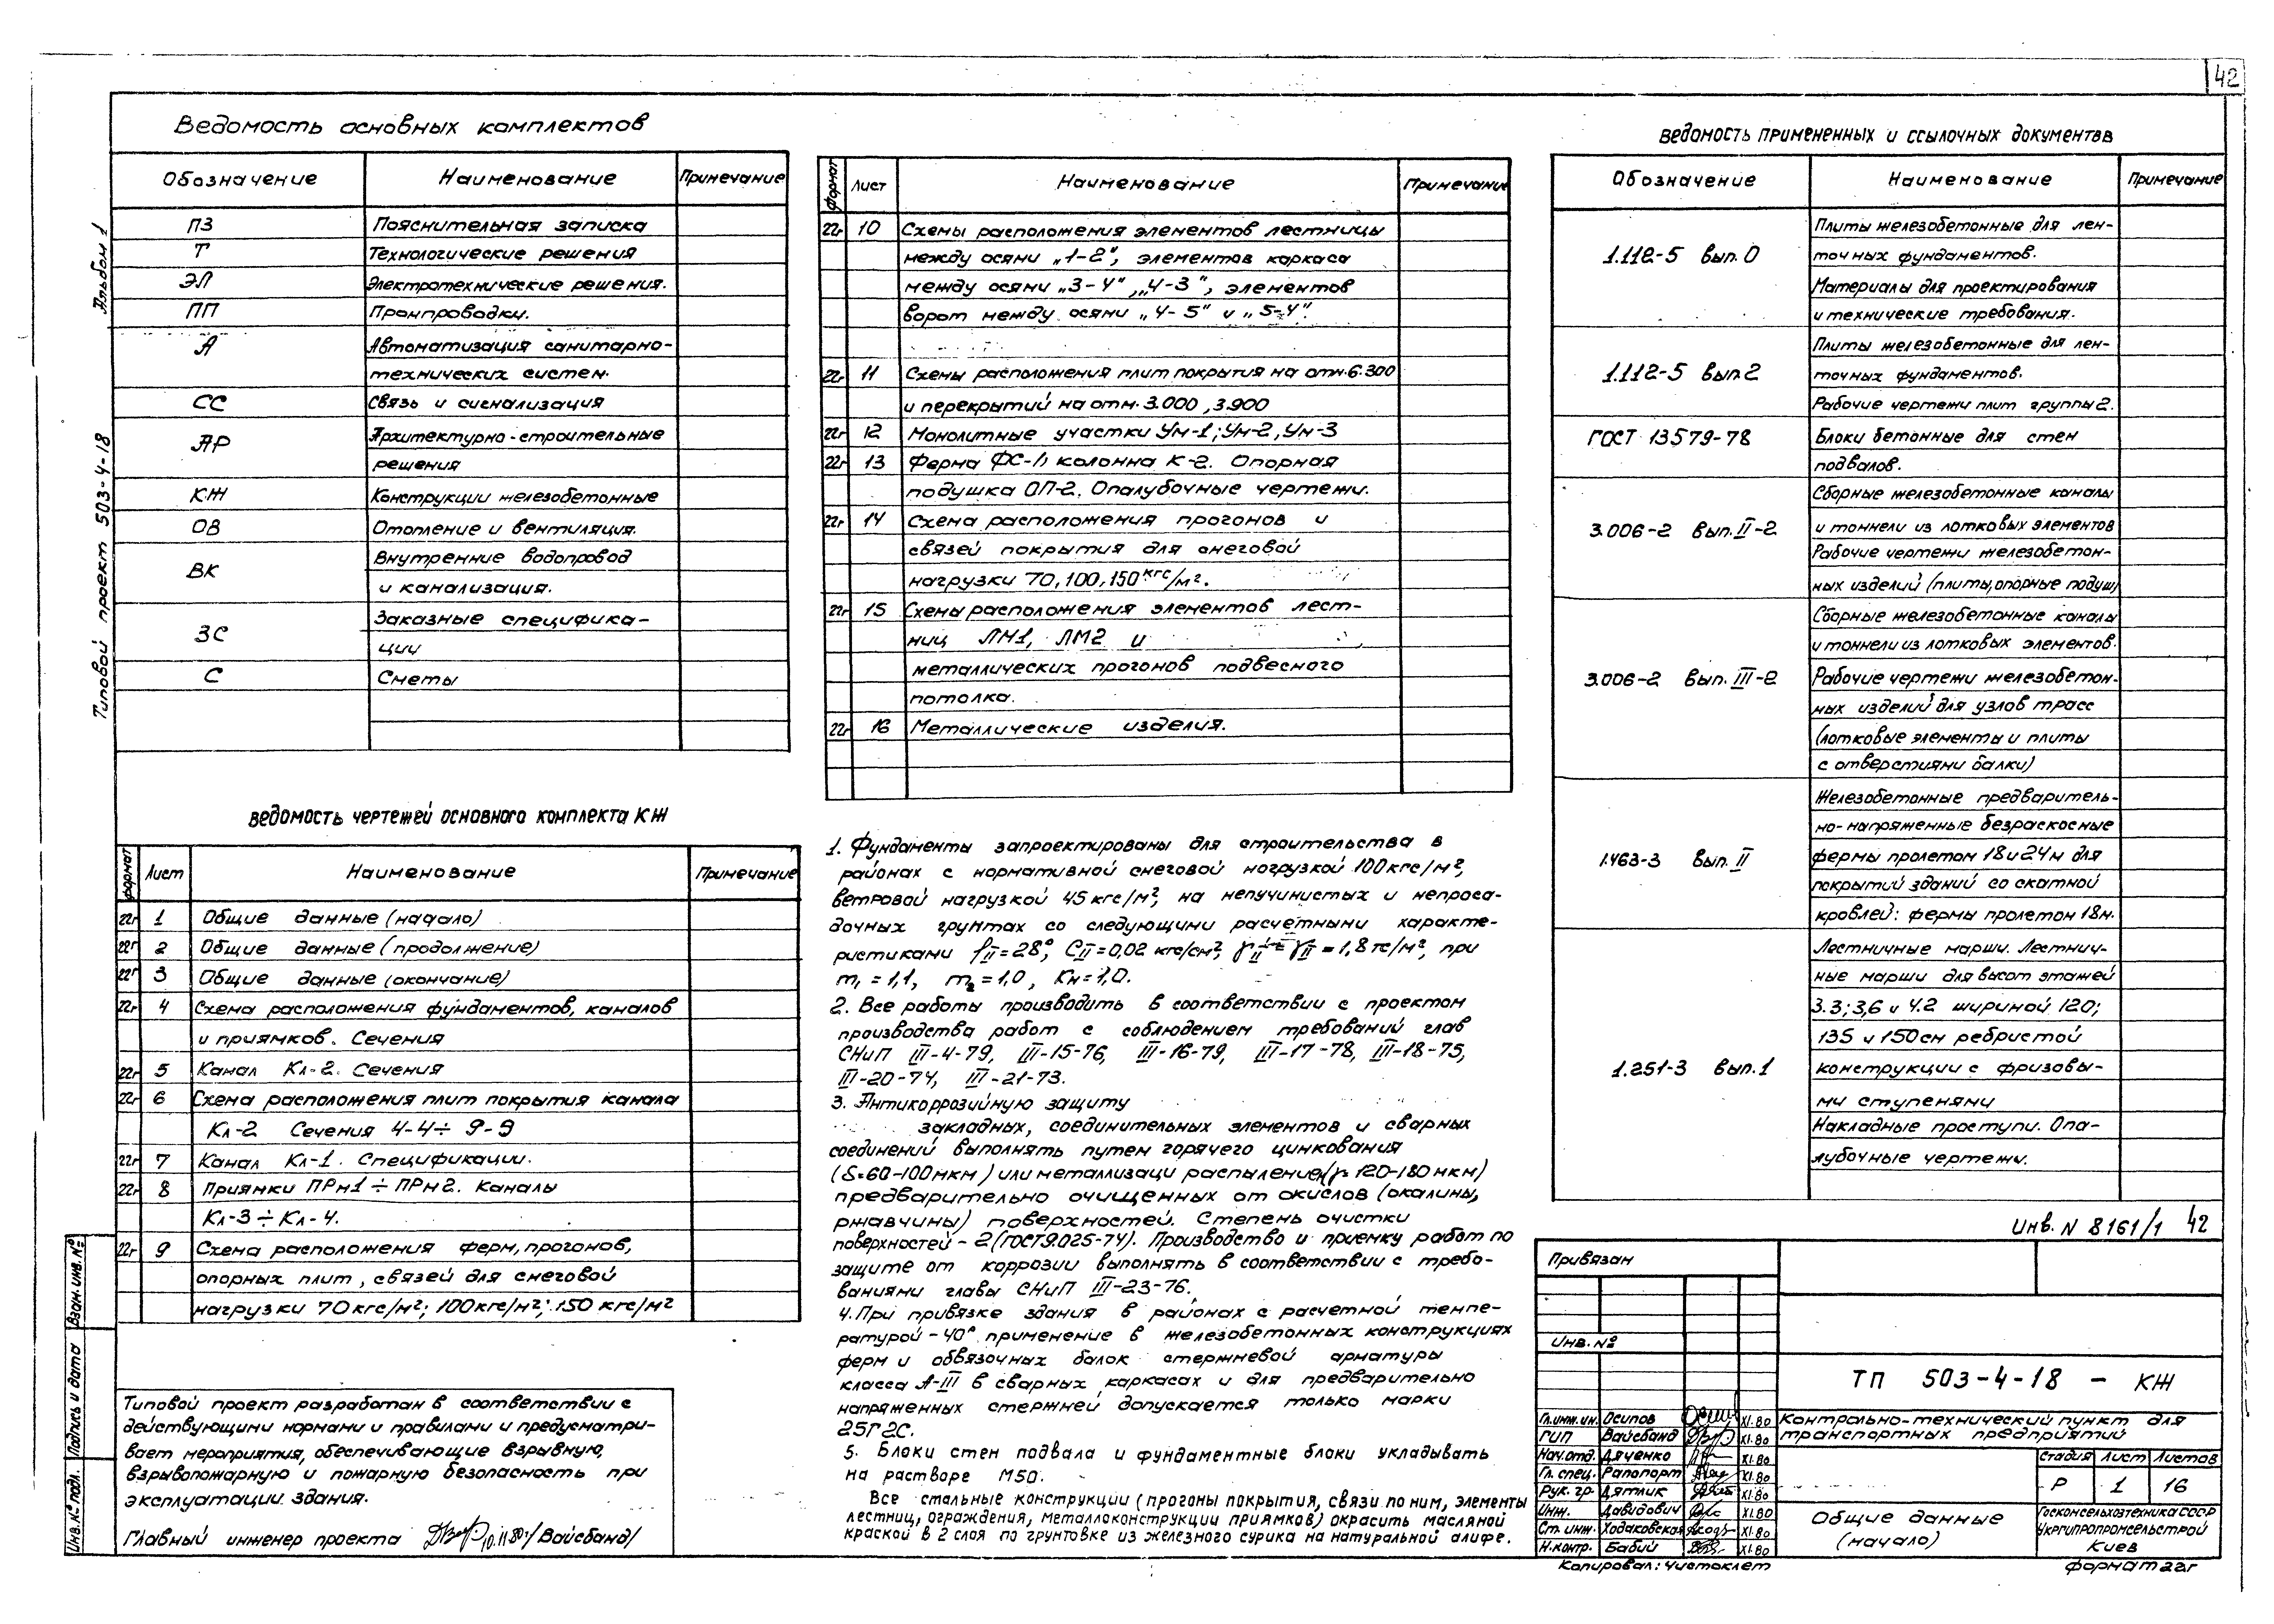 42
Альбом 1
Типовой проект 503-4-18
Ведомость основных комплектов
Обозначение Наименование Примечание
ПЗ Пояснительная записка
Т Технологические решения
ЭЛ Электротехнические решения.
ПП Промпроводки.
А Автоматизация санитарно-
технических систем.
СС Связь и сигнализация
АР Архитектурно-строительные
решения
КЖ Конструкции железобетонные
ОВ Отопление и вентиляция.
ВК Внутренние водопровод
и канализация.
ЗС Заказные специфика-
ции
С Сметы
Ведомость чертежей основного комплекта КЖ
формат Лист Наименование Примечание
22г 1 Общие данные (начало)
22г 2 Общие данные (продолжение)
22г 3 Общие данные (окончание)
22г 4 Схема расположения фундаментов, каналов
и приямков. Сечения
22г 5 Канал Кл-2. Сечения
22г 6 Схема расположения плит покрытия канала
Кл-2 Сечения 4-4÷ 9-9
22г 7 Канал Кл-1. Спецификации.
22г 8 Приямки ПРм1 ÷ ПРм2. Каналы
Кл-3 ÷ Кл-4.
22г 9 Схема расположения ферм, прогонов,
опорных плит, связей для снеговой
нагрузки 70кгс/м²; 100кгс/м²; 150 кгс/м²
Типовой проект разработан в соответствии с
действующими нормами и правилами и предусматри-
вает мероприятия, обеспечивающие взрывную,
взрывопожарную и пожарную безопасность при
эксплуатации здания.
Главный инженер проекта 10.11.80г /Вайсбанд/
Взам. инв. №
Подпись и дата
Инв. № подл.
формат Лист Наименование Примечание
22г 10 Схемы расположения элементов лестницы
между осями „1-2", элементов каркаса
между осями „3-4", „4-3", элементов
ворот между осями „4-5" и „5-4".
22г 11 Схемы расположения плит покрытия на отм.6.300
и перекрытий на отм. 3.000, 3.900
22г 12 Монолитные участки Ум-1; Ум-2, Ум-3
22г 13 Ферма ФС-1, колонна К-2. Опорная
подушка ОП-2. Опалубочные чертежи.
22г 14 Схема расположения прогонов и
связей покрытия для снеговой
нагрузки 70, 100, 150 кгс/м².
22г 15 Схемы расположения элементов лест-
ниц ЛМ1, ЛМ2 и
металлических прогонов подвесного
потолка.
22г 16 Металлические изделия.
1. Фундаменты запроектированы для строительства в
районах с нормативной снеговой нагрузкой 100кгс/м²,
ветровой нагрузкой 45 кгс/м², на непучинистых и непроса-
дочных грунтах со следующими расчетными характе-
ристиками φII=28°, СII=0,02 кгс/см², при
m₁ = 1,1, m₂ = 1,0, Кн=1,0.
2. Все работы производить в соответствии с проектом
производства работ с соблюдением требований глав
СНиП III-4-79, III-15-76, III-16-79, III-17-78, III-18-75,
III-20-74, III-21-73.
3. Антикоррозийную защиту
закладных, соединительных элементов и сварных
соединений выполнять путем горячего цинкования
(δ=60-100мкм) или металлизаци распылением 120-180 мкм)
предварительно очищенных от окислов (окалины,
ржавчины) поверхностей. Степень очистки
поверхностей - 2 (ГОСТ9.025-74). Производство и приемку работ по
защите от коррозии выполнять в соответствии с требо-
ваниями главы СНиП III-23-76.
4. При привязке здания в районах с расчетной темпе-
ратурой -40° применение в железобетонных конструкциях
ферм и обвязочных балок стержневой арматуры
класса А-III в сварных каркасах и для предварительно
напряженных стержней допускается только марки
25Г2С.
5. Блоки стен подвала и фундаментные блоки укладывать
на растворе М50.
Все стальные конструкции (прогоны покрытия, связи по ним, элементы
лестниц, ограждения, металлоконструкции приямков) окрасить масляной
краской в 2 слоя по грунтовке из железного сурика на натуральной олифе.
Ведомость примененных и ссылочных документов
Обозначение Наименование Примечание
1.112-5 вып. 0 Плиты железобетонные для лен-
точных фундаментов.
Материалы для проектирования
и технические требования.
1.112-5 вып 2 Плиты железобетонные для лен-
точных фундаментов.
Рабочие чертежи плит группы 2.
ГОСТ 13579-78 Блоки бетонные для стен
подвалов.
3.006-2 вып. II-2 Сборные железобетонные каналы
и тоннели из лотковых элементов
Рабочие чертежи железобетон-
ных изделий (плиты, опорные подуш)
3.006-2 вып. III-2 Сборные железобетонные каналы
и тоннели из лотковых элементов.
Рабочие чертежи железобетон-
ных изделий для узлов трасс
(лотковые элементы и плиты
с отверстиями балки)
1.463-3 вып. II Железобетонные предваритель-
но-напряженные безраскосные
фермы пролетом 18 и 24м для
покрытий зданий со скатной
кровлей: фермы пролетом 18м.
1.251-3 вып. 1 Лестничные марши. Лестнич-
ные марши для высот этажей
3.3; 3,6 и 4.2 шириной 120;
135 и 150см ребристой
конструкции с фризовы-
ми ступенями
Накладные проступи. Опа-
лубочные чертежи.
Инв. N 8161/1 42
Привязан
Инв. №
ТП 503-4-18 - КЖ
Гл.инж.ин. Осипов XI.80
ГИП Вайсбанд XI.80
Нач.отд. Дяченко XI.80
Гл. спец. Рапопорт XI.80
Рук. гр. Дятлик XI.80
Инж. Давидович XI.80
Ст. инж. Ходаковская XI.80
Н.контр. Бабий XI.80
Контрольно-технический пункт для
транспортных предприятий
Стадия Лист Листов
Р 1 16
Общие данные
(начало)
Госкомсельхозтехника СССР
Укргипропромсельстрой
Киев
Копировал: Чистоклет
формат 22г